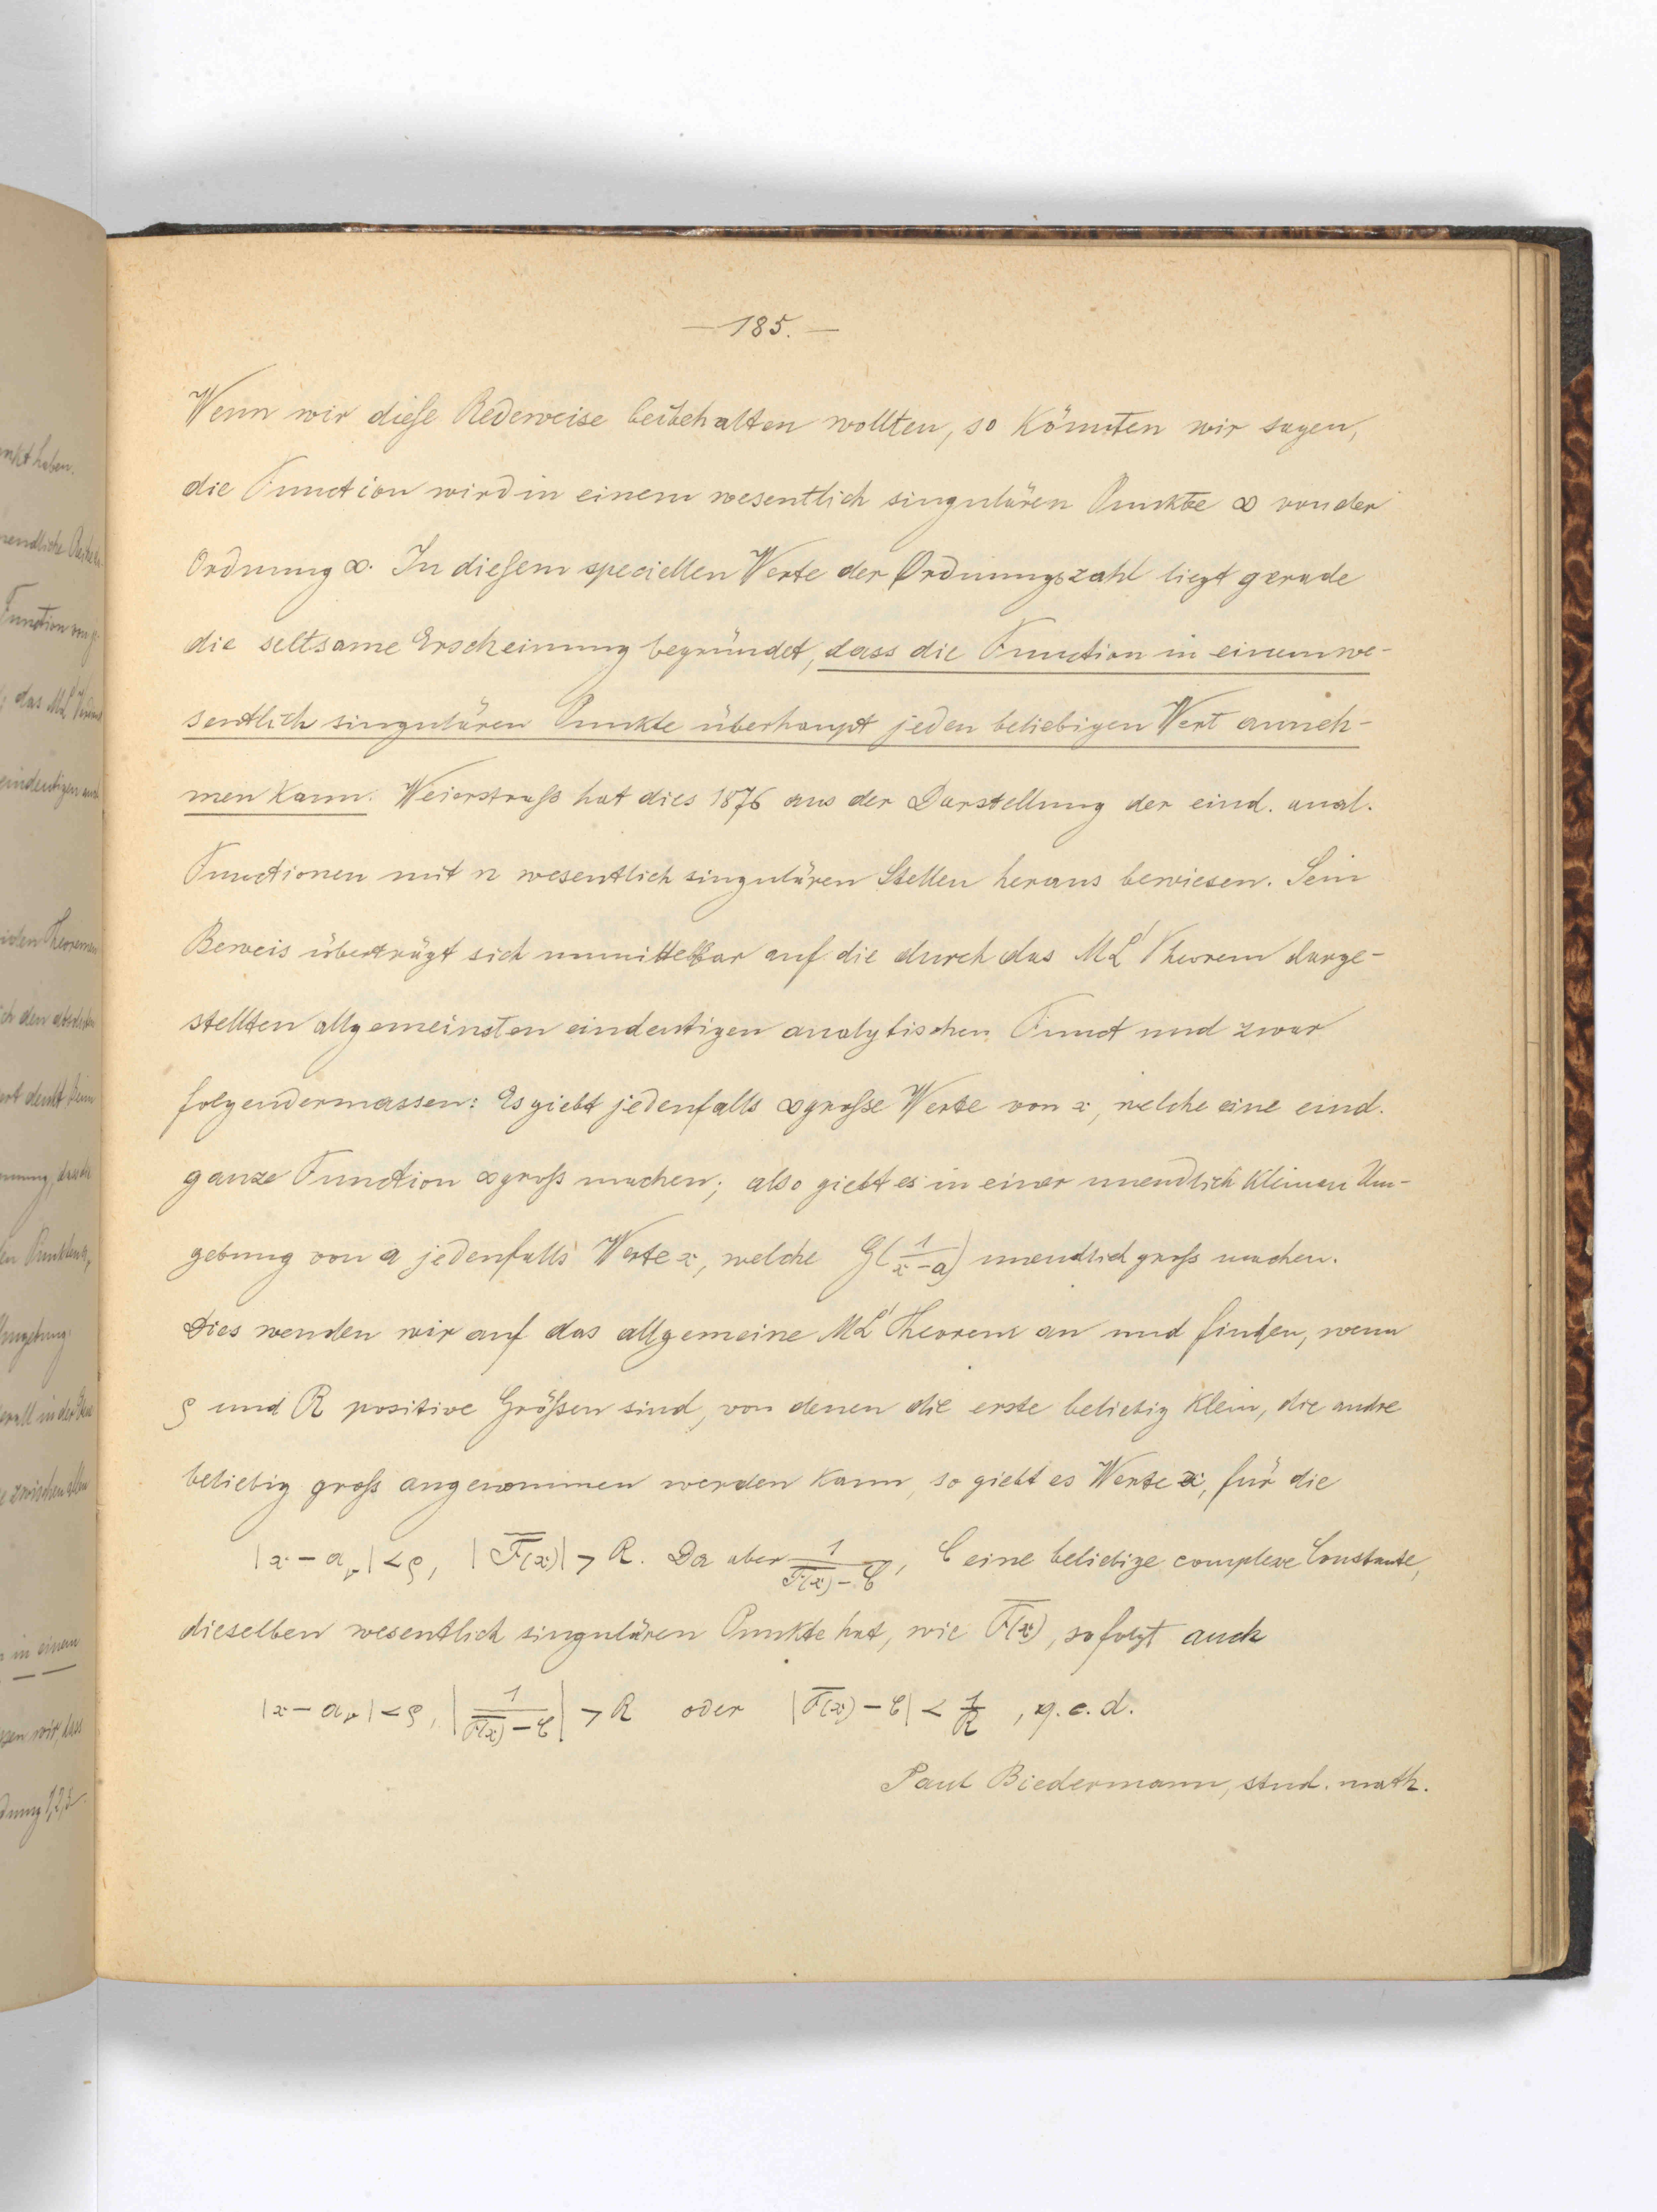 — 185. —
Wenn wir diese Redeweise beibehalten wollten, so könnten wir sagen,
die Function wird in einem wesentlich singulären Punkte ∞ von der
Ordnung ∞. In diesem speciellen Werte der Ordnungszahl liegt gerade
die seltsame Erscheinung begründet, dass die Function in einem we-
sentlich singulären Punkte überhaupt jeden beliebigen Wert anneh-
men kann. Weierstraß hat dies 1876 aus der Darstellung der eind. anal.
Functionen mit n wesentlich singulären Stellen heraus bewiesen. Sein
Beweis überträgt sich unmittelbar auf die durch das ML' Theorem darge-
stellten allgemeinsten eindeutigen analytischen Funct und zwar
folgendermassen: Es giebt jedenfalls ∞ große Werte von x, welche eine eind.
ganze Function ∞ groß machen; also giebt es in einer unendlich kleinen Um-
gebung von a jedenfalls Werte x, welche G(1/(x-a)) unendlich groß machen.
Dies wenden wir auf das allgemeine ML' Theorem an und finden, wenn
ρ und R positive Größen sind, von denen die erste beliebig klein, die andre
beliebig groß angenommen werden kann, so giebt es Werte x, für die
|x - a_ν| < ρ, |F(x)| > R. Da aber 1/(F(x) - C), C eine beliebige complexe Constante,
dieselben wesentlich singulären Punkte hat, wie F(x), so folgt auch
|x - a_ν| < ρ, |1/(F(x) - C)| > R oder |F(x) - C| < 1/R, q. e. d.
Paul Biedermann, stud. math.